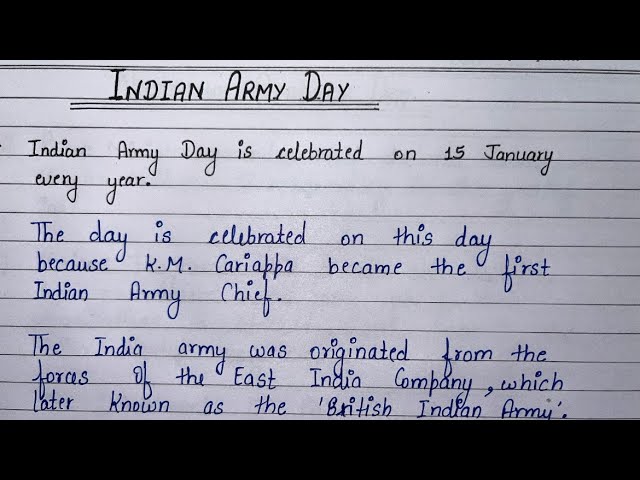 INDIAN ARMY DAY
Indian Army Day is celebrated on 15 January
every year.
The day is celebrated on this day
because K.M. Cariappa became the first
Indian Army Chief.
The India army was originated from the
forces of the East India Company, which
later known as the 'British Indian Army'.